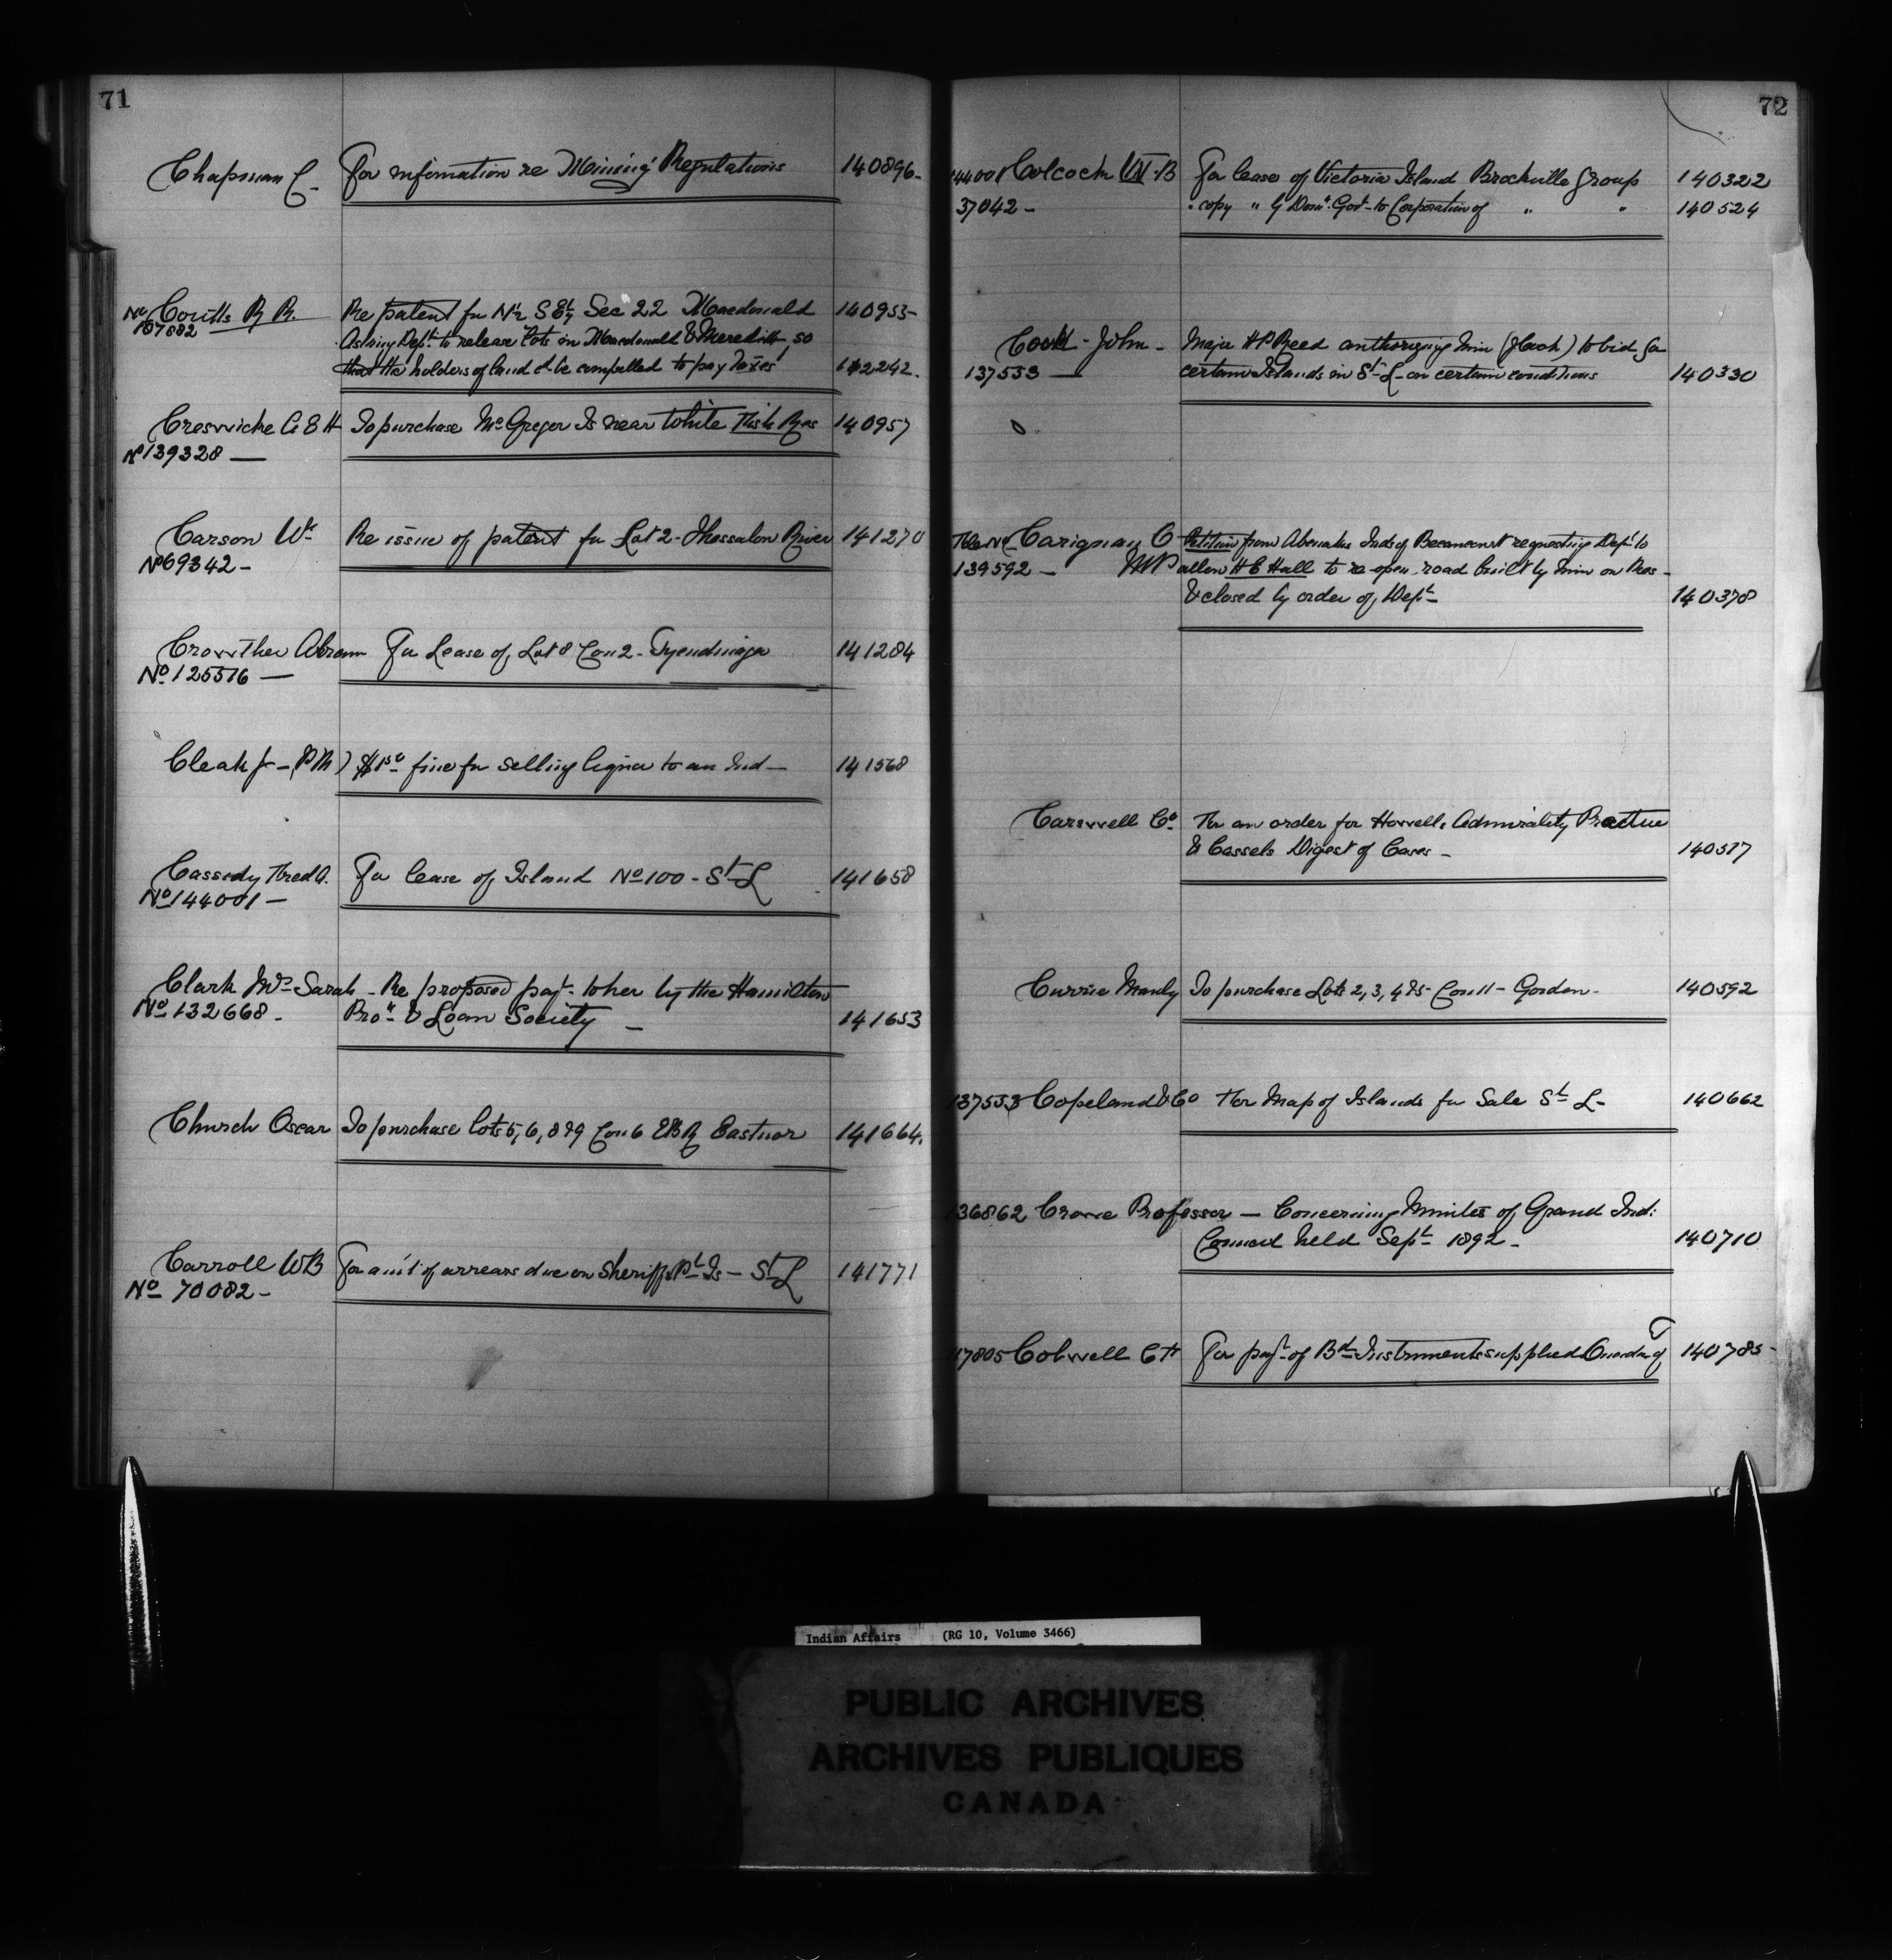 71
Chapman C. For information re Mining Regulations 140896
No Coutts R R. Re patent for N½ S E¼ Sec 22 Macdonald 140955
157882 Asking Dept. to release lots in Macdonald & Meredith, so
that the holders of land c'd be compelled to pay taxes 142242.
Creswicke A E H To purchase McGregor Is near White Fish Res 140957
No 139328 —
Carson Wm Re issue of patent for Lot 2 - Thessalon River 141270
No 69342 -
Crowther Abram For Lease of Lot 8 Con 2 - Tyendinaga 141284
No 125516 —
Cleak J - (P M) fine for selling liquor to an Ind — 141568
Cassidy Fred A. For lease of Island No 100 - St L 141658
No 144001 —
Clark Mrs Sarah - Re proposed payt. to her by the Hamilton
No 132668 - Prot & Loan Society — 141653
Church Oscar To purchase lots 5, 6, 8 & 9 Con 6 E B R Eastnor 141664.
Carroll W B For am't of arrears due on Sheriffs Pt Is — St L 141771
No 70082 -
72
144001 Colcock W. B For lease of Victoria Island Brockville Group 140322
37042 - " copy " by Domn. Govt - to Corporation of " " 140524
Cook - John - Major H P Reed authorizing him (J Cook) to bid for
137553 — certain Islands in St - L - on certain conditions 140330
File No Carignan O Petition from Abenakis Inds of Becancourt requesting Dept to
139592 - M P allow H E Hall to re-open road built by him on Res -
& closed by order of Dept - 140378
Carswell Co. For an order for Howells Admirality Practice
& Cassels Digest of Cases - 140517
Currie Manly To purchase Lots 2, 3, 4 & 5 - Con 11 - Gordon - 140592
137553 Copeland & Co For Map of Islands for Sale St L - 140662
136862 Crowe Professor — Concerning Minutes of Grand Ind:
Council held Sept - 1892 - 140710
117805 Colwell C H For payt. of Bd Instruments supplied Oneidas of T 140785
Indian Affairs (RG 10, Volume 3466)
PUBLIC ARCHIVES
ARCHIVES PUBLIQUES
CANADA